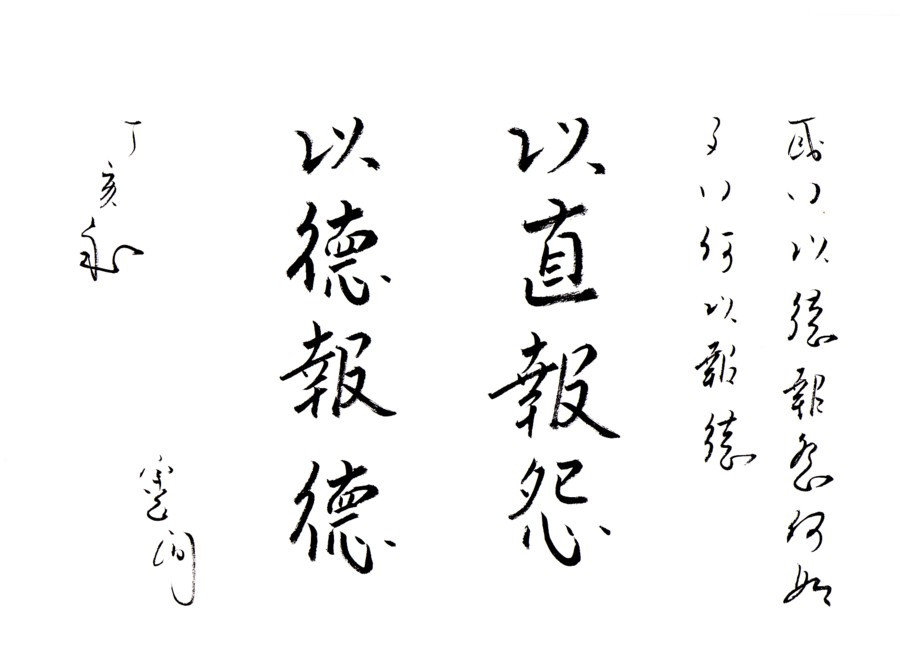 或曰以德報怨何如
子曰何以報德
以直報怨
以德報德
丁亥秋